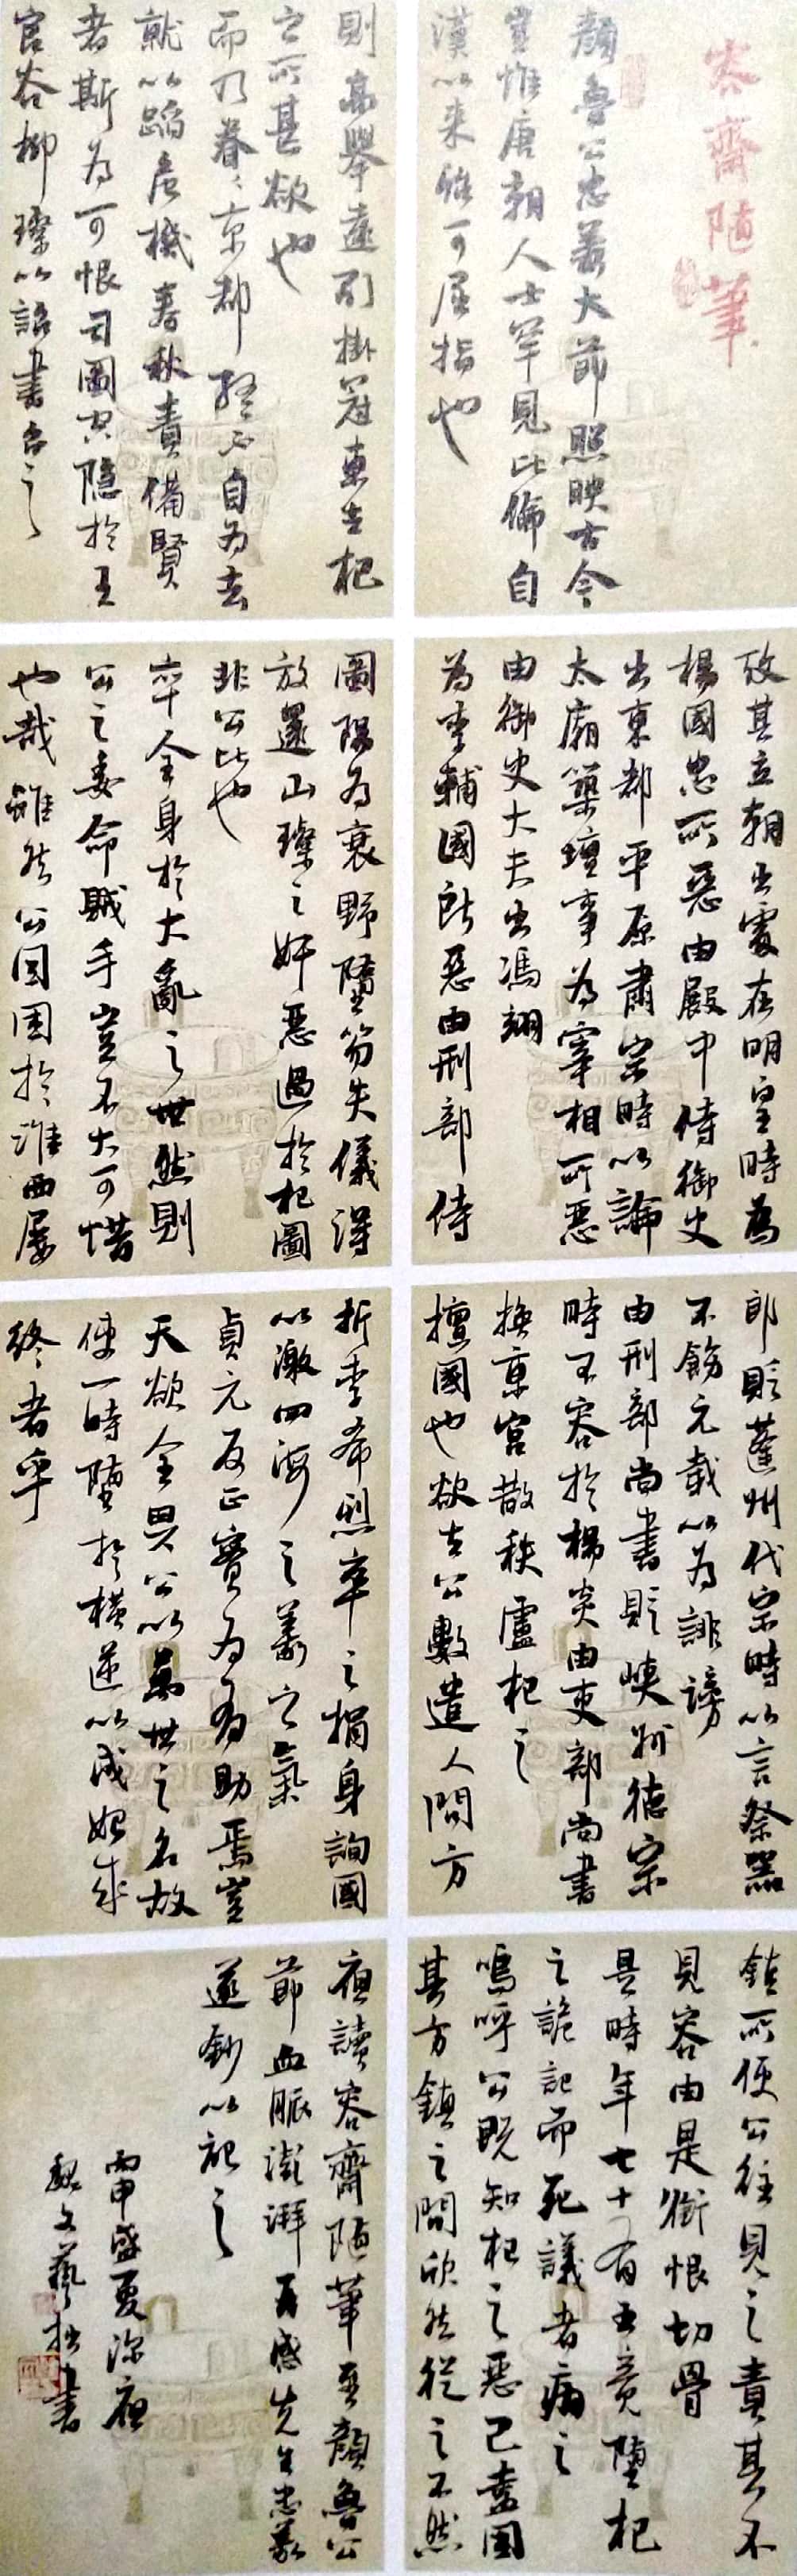 容齋随筆
顏魯公忠義大節照映古今
豈惟唐朝人士罕見比倫自
漢以来殆可屈指也
攷其立朝出處在明皇時為
楊國忠所惡由殿中侍御史
出東都平原肅宗時以論
太廟築壇事為宰相所惡
由御史大夫出馮翊
為李輔國所惡由刑部侍
郎貶蓬州代宗時以言祭器
不飭元載以為誹謗
由刑部尚書貶峽州德宗
時不容於楊炎由吏部尚書
換東宮散秩盧杞之
擅國也欲去公數遣人問方
鎮所便公往見之責其不
見容由是銜恨切骨
是時年七十有五竟墮杞
之詭計而死議者痛之
嗚呼公既知杞之惡己盍因
其方鎮之問欣然從之不然
則高舉遠引掛冠東去杞
之所甚欲也
而乃眷眷京都終不自為去
就以蹈危機春秋責備賢
者斯為可恨司圖空隱於王
官谷柳璨以詔書召之
圖陽為衰野墮笏失儀得
放還山璨之奸惡過於杞圖
非公比也
卒全身於大亂之世然則
公之委命賊手豈不大可惜
也哉雖然公囚困於淮西屢
折李希烈卒之捐身詢國
以激四海之義之氣
貞元反正實為有助焉豈
天欲全畀公以萬世之名故
使一時墮於橫逆以成始成
終者乎
夜讀容齋随筆至顏魯公
節血脈澎湃有感先生忠義
遂鈔以記之
丙申盛夏深夜
魏文藝拙書